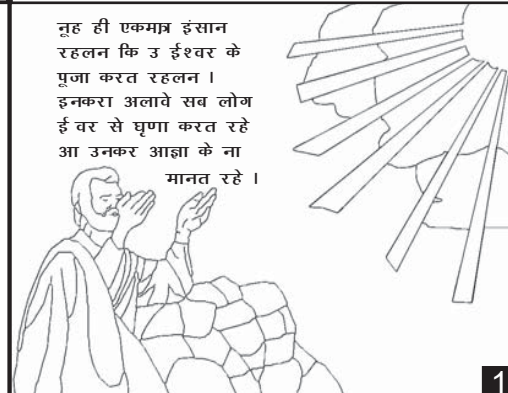 नूह ही एकमात्र इंसान
रहलन कि उ ईश्वर के
पूजा करत रहलन ।
इनकरा अलावे सब लोग
ई वर से घृणा करत रहे
आ उनकर आज्ञा के ना
मानत रहे ।
1